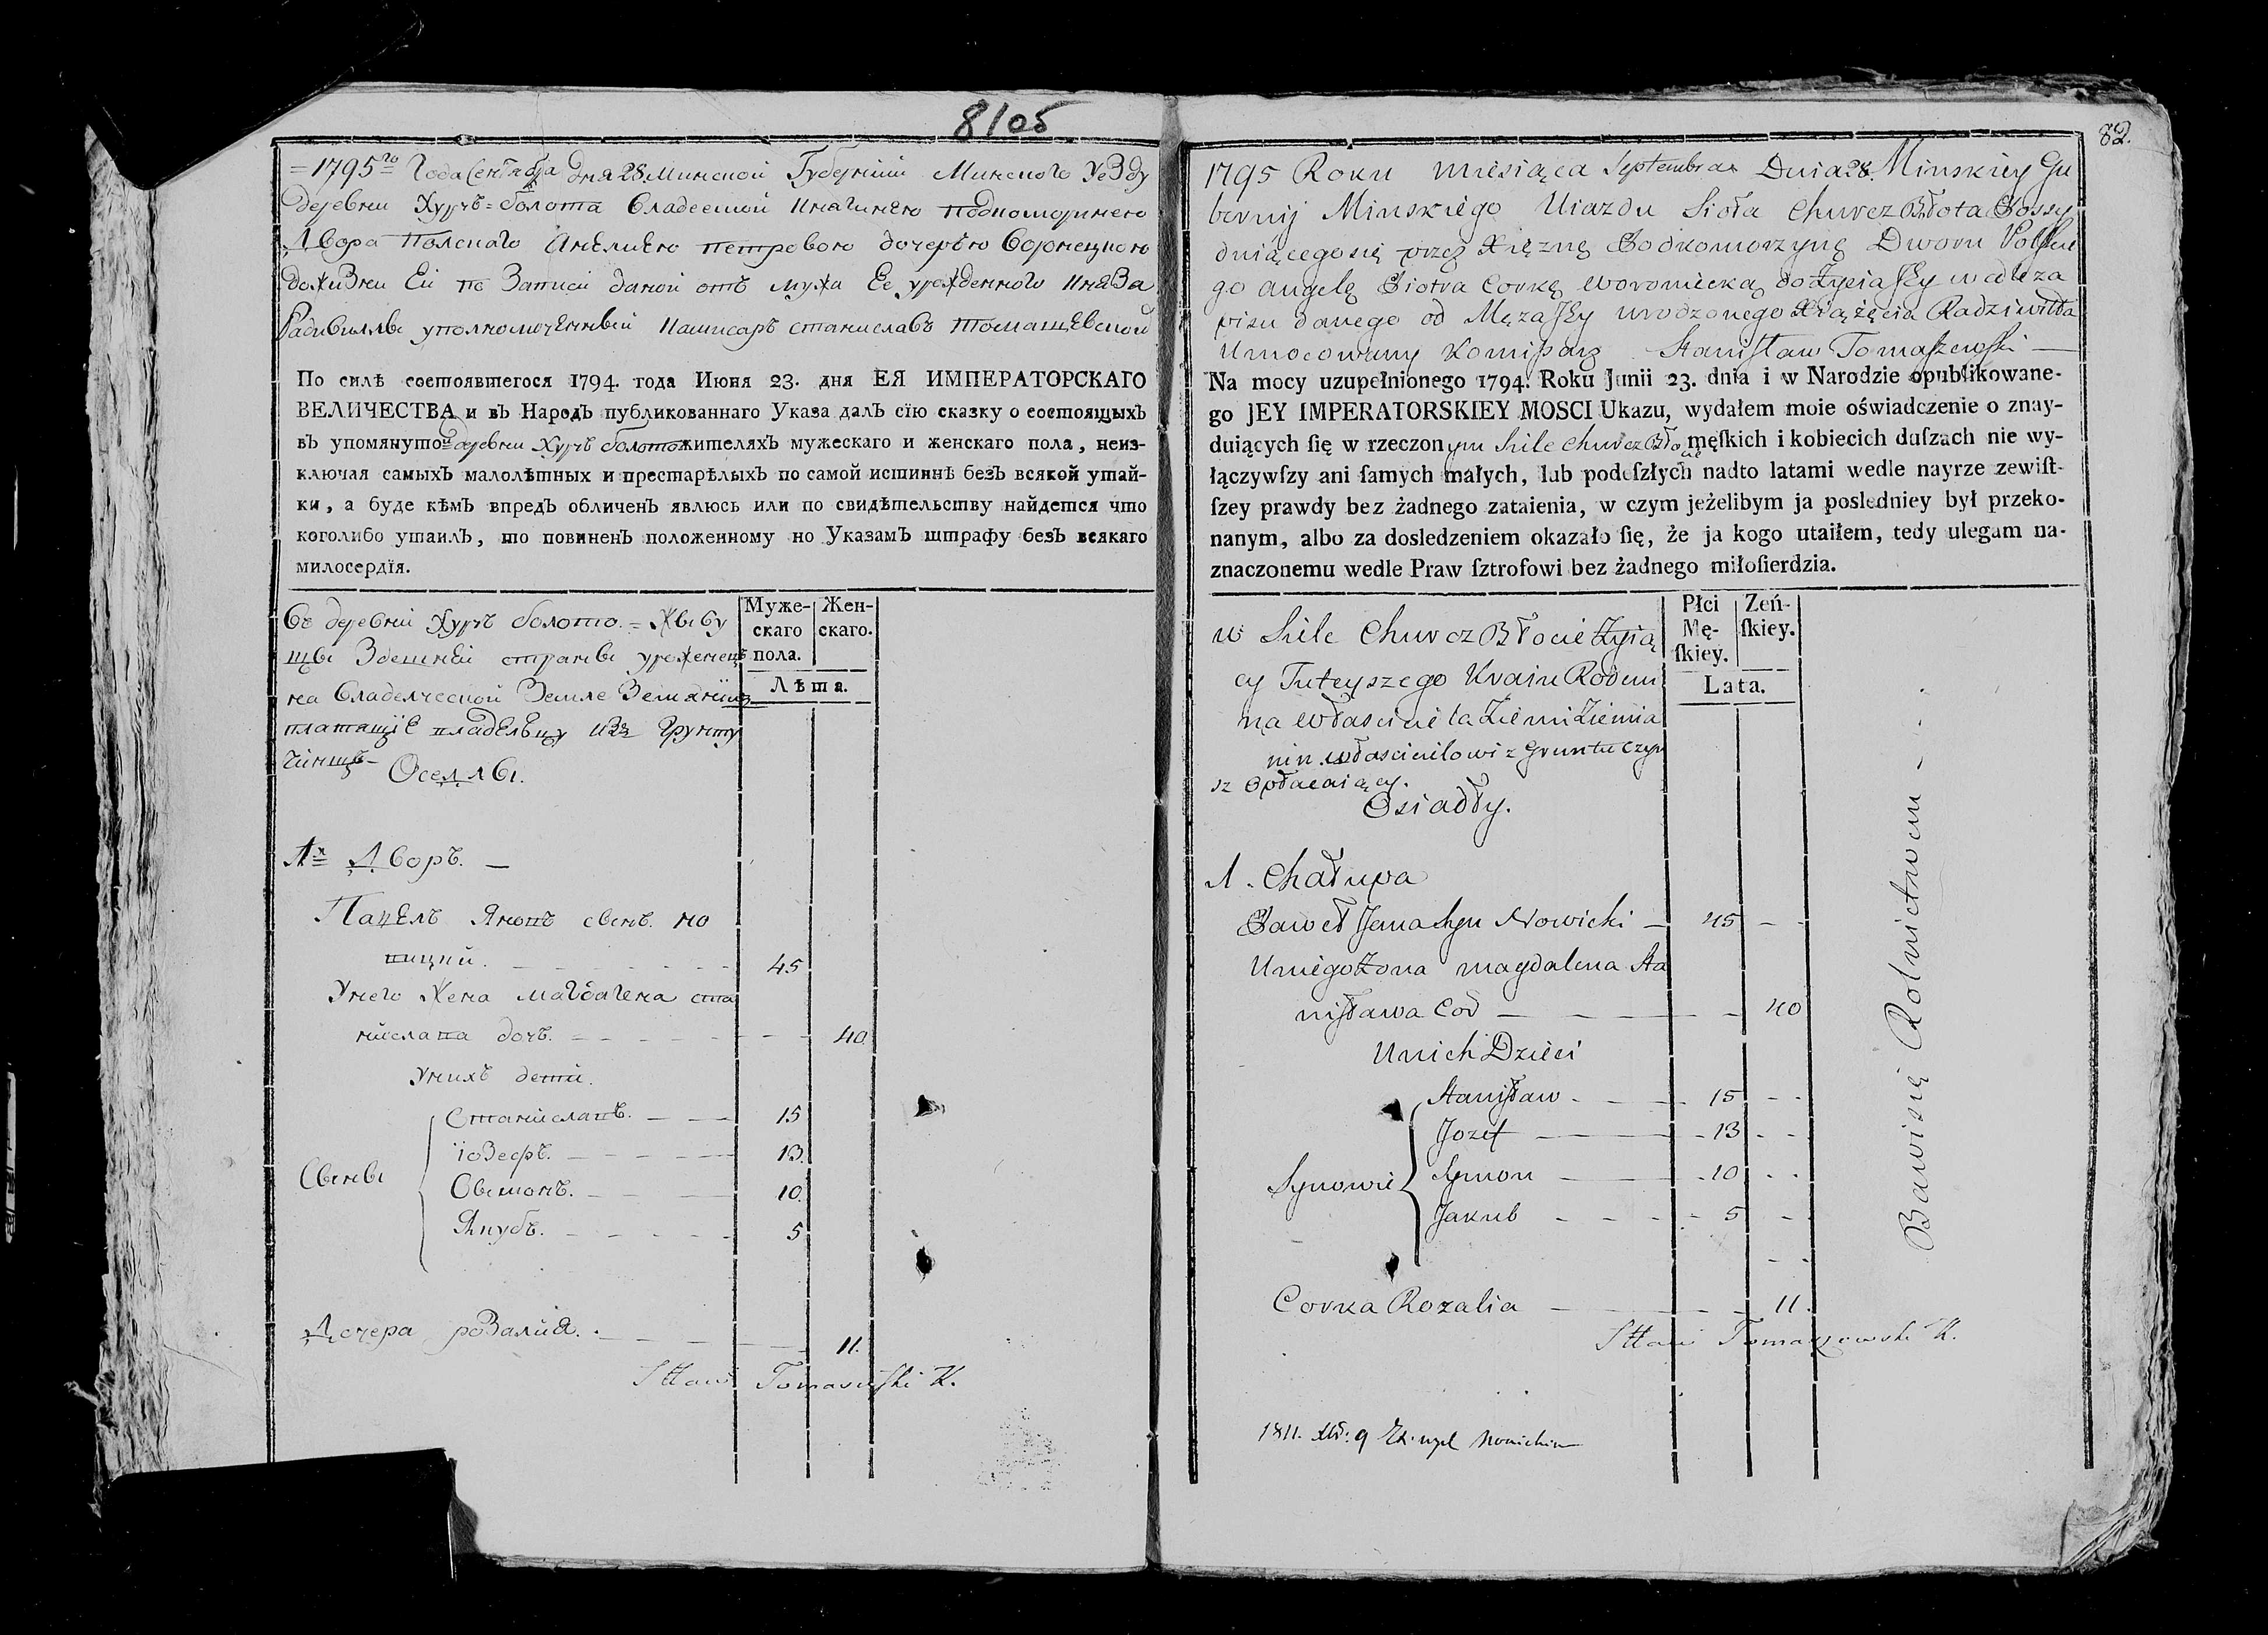 81об
=1795го Года Сентября дня 28. Минской Губернии Минского Уезду
деревни Хурчъ=болота Владеемой Княгинею подкоморинею
Двора полскаго Анелиею петровою дочерью Воронецкою
дожизни Ей по Записи даной отъ мужа Ее урожденного Князя
Радивиллы уполномоченный Камисаръ станиславъ томашевской
По силѣ состоявшегося 1794. года Июня 23. дня ЕЯ ИМПЕРАТОРСКАГО
ВЕЛИЧЕСТВА и въ Народъ публикованнаго Указа далъ сїю сказку о состоящыхъ
въ упомянутой деревни Хурчъ болото жителяхъ мужескаго и женскаго пола, неиз-
ключая самыхъ малолѣтных и престарѣлыхъ по самой истиннѣ безъ всякой утай-
ки, а буде кѣмъ впредъ обличенъ явлюсь или по свидѣтельству найдется что
коголибо утаилъ, то повиненъ положенному по Указамъ штрафу безъ всякаго
милосердїя.
Муже-
скаго
пола.
Жен-
скаго.
Лѣта.
Въ деревни Хурчъ болото = Живу
щы Здешней страны уроженецъ
на Владелческой Земле Земянинъ
платящïе владельцу изъ Грунту
Чиншъ
Оселлы.
1х Дворъ. —
Павелъ Яновъ сынъ. но
вицкий. 45
Унего Жена магдалена ста
нислава дочъ. 40
Унихъ дети.
Сыны
Станиславъ. 15
їозефъ. 13
Сымонъ. 10
Якубъ. 5
Дочера розалия. 11.
Sttaw Tomaszewski K.
82.
1795 Roku miesiąca Septembra Dnia 28. Minskiey Gu
bernij Minskiego Uiazdu Sioła Churcz Błota Possy
dniącego się przez Xiężnę Podkomorzynę Dworu Polskie
go angelę Piotra Corkę Woroniecką do Życia Jey wedle za
pisu danego od Męza Jey urodzonego Xiążęcia Radziwiłła
Umocowany Komisarz Stanisław Tomaszewski —
Na mocy uzupełnionego 1794. Roku Junii 23. dnia i w Narodzie opublikowane-
go JEY IMPERATORSKIEY MOSCI Ukazu, wydałem moie oświadczenie o znay-
duiących ſię w rzeczonym Siele Churcz Błocie męſkich i kobiecich duſzach nie wy-
łączywſzy ani ſamych małych, lub podeſzłych nadto latami wedle nayrze zewiſt-
ſzey prawdy bez żadnego zataienia, w czym jeżelibym ja posledniey był przeko-
nanym, albo za dosledzeniem okazało ſię, że ja kogo utaiłem, tedy ulegam na-
znaczonemu wedle Praw ſztrofowi bez żadnego miłoſierdzia.
Płci
Mę-
ſkiey.
Zeń-
ſkiey.
Lata.
w Siele Churcz Błocie Żyią
cy Tuteyszego Kraiu Rodem
na Własciciela Ziemi Ziemia
nin Własicielowi z Gruntu Czyn
sz Opłacaiący.
Osiadły.
1. Chałupa
Paweł Jana Syn Nowicki — 45
U niego Żona magdalena Sta
nisława Cor — 40
U nich Dzieci
Synowie
Stanisław 15
Jozef 13
Symon 10
Jakub 5
Corka Rozalia 11.
Bawi się Rolnictwem
Sttaw Tomaszewski K.
1811.